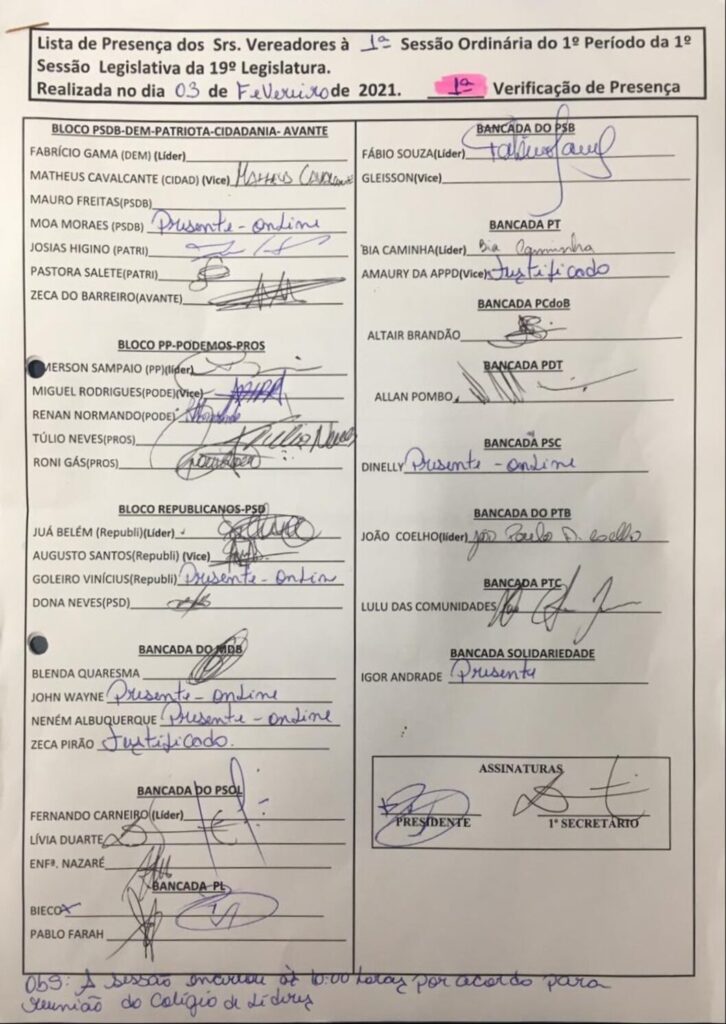 Lista de Presença dos Srs. Vereadores à 1ª Sessão Ordinária do 1º Período da 1º
Sessão Legislativa da 19º Legislatura.
Realizada no dia 03 de Fevereiro de 2021. 1ª Verificação de Presença
BLOCO PSDB-DEM-PATRIOTA-CIDADANIA- AVANTE
FABRÍCIO GAMA (DEM) (Líder)
MATHEUS CAVALCANTE (CIDAD) (Vice) Matheus Cavalcante
MAURO FREITAS(PSDB)
MOA MORAES (PSDB) Presente - online
JOSIAS HIGINO (PATRI)
PASTORA SALETE(PATRI)
ZECA DO BARREIRO(AVANTE)
BLOCO PP-PODEMOS-PROS
MERSON SAMPAIO (PP)(líder)
MIGUEL RODRIGUES(PODE)(Vice)
RENAN NORMANDO(PODE)
TÚLIO NEVES(PROS) Túlio Neves
RONI GÁS(PROS)
BLOCO REPUBLICANOS-PSD
JUÁ BELÉM (Republi)(Líder)
AUGUSTO SANTOS(Republi) (Vice)
GOLEIRO VINÍCIUS(Republi) Presente - Online
DONA NEVES(PSD)
BANCADA DO MDB
BLENDA QUARESMA
JOHN WAYNE Presente - online
NENÉM ALBUQUERQUE Presente - online
ZECA PIRÃO Justificado.
BANCADA DO PSOL
FERNANDO CARNEIRO (Líder)
LÍVIA DUARTE
ENFª. NAZARÉ
BANCADA PL
BIECO
PABLO FARAH
BANCADA DO PSB
FÁBIO SOUZA(Líder)
GLEISSON(Vice)
BANCADA PT
BIA CAMINHA(Líder) Bia Caminha
AMAURY DA APPD(Vice) Justificado
BANCADA PCdoB
ALTAIR BRANDÃO
BANCADA PDT
ALLAN POMBO
BANCADA PSC
DINELLY Presente - online
BANCADA DO PTB
JOÃO COELHO(líder) João Paulo A. Coelho
BANCADA PTC
LULU DAS COMUNIDADES
BANCADA SOLIDARIEDADE
IGOR ANDRADE Presente
ASSINATURAS
PRESIDENTE 1º SECRETÁRIO
Obs: A sessão encerrou às 10:00 horas por acordo para
reunião do Colégio de Líderes